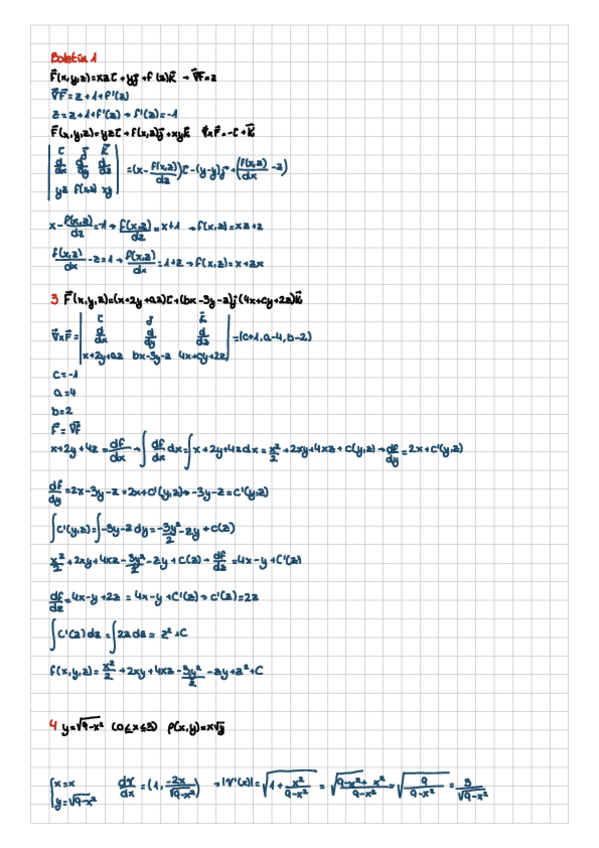 Boletín 1
F⃗(x,y,z)=xz i⃗ + y j⃗ + f(z) k⃗ → ∇⃗F=z
∇⃗F = z+1+f'(z)
z = z+1+f'(z) → f'(z)=-1
F⃗(x,y,z)=yz i⃗ + f(x,z) j⃗ + xy k⃗ ∇⃗xF⃗=-i⃗+k⃗
| i⃗ j⃗ k⃗ |
| d/dx d/dy d/dz | =(x - f(x,z)/dz) i⃗ - (y-y) j⃗ + (f(x,z)/dx - z)
| yz f(x,z) xy |
x - f(x,z)/dz = -1 → f(x,z)/dz = x+1 → f(x,z)=xz+z
f(x,z)/dx - z = 1 → f(x,z)/dx = 1+z → f(x,z)=x+zx
3 F⃗(x,y,z)=(x+2y+az) i⃗ + (bx-3y-z) j⃗ (4x+cy+2z) k⃗
| i⃗ j⃗ k⃗ |
∇⃗xF⃗ = | d/dx d/dy d/dz | =(c+1, a-4, b-2)
| x+2y+az bx-3y-z 4x+cy+2z |
c=-1
a=4
b=2
F⃗ = ∇⃗F
x+2y+4z = df/dx → ∫ df/dx dx = ∫ x+2y+4z dx = x²/2 + 2xy + 4xz + c(y,z) → df/dy = 2x + c'(y,z)
df/dy = 2x-3y-z = 2x+c'(y,z) → -3y-z = c'(y,z)
∫ c'(y,z) = ∫ -3y-z dy = -3y²/2 - zy + c(z)
x²/2 + 2xy + 4xz - 3y²/2 - zy + c(z) → df/dz = 4x-y+c'(z)
df/dz = 4x-y+2z = 4x-y+c'(z) → c'(z)=2z
∫ c'(z) dz = ∫ 2z dz = z²+C
f(x,y,z) = x²/2 + 2xy + 4xz - 3y²/2 - zy + z² + C
4 y=√9-x² (0≤x≤3) ρ(x,y)=x√y
{ x=x
{ y=√9-x² dr/dx = (1, -2x/√9-x²) → |r'(x)| = √1 + x²/9-x² = √9-x²+x²/9-x² = √9/9-x² = 3/√9-x²